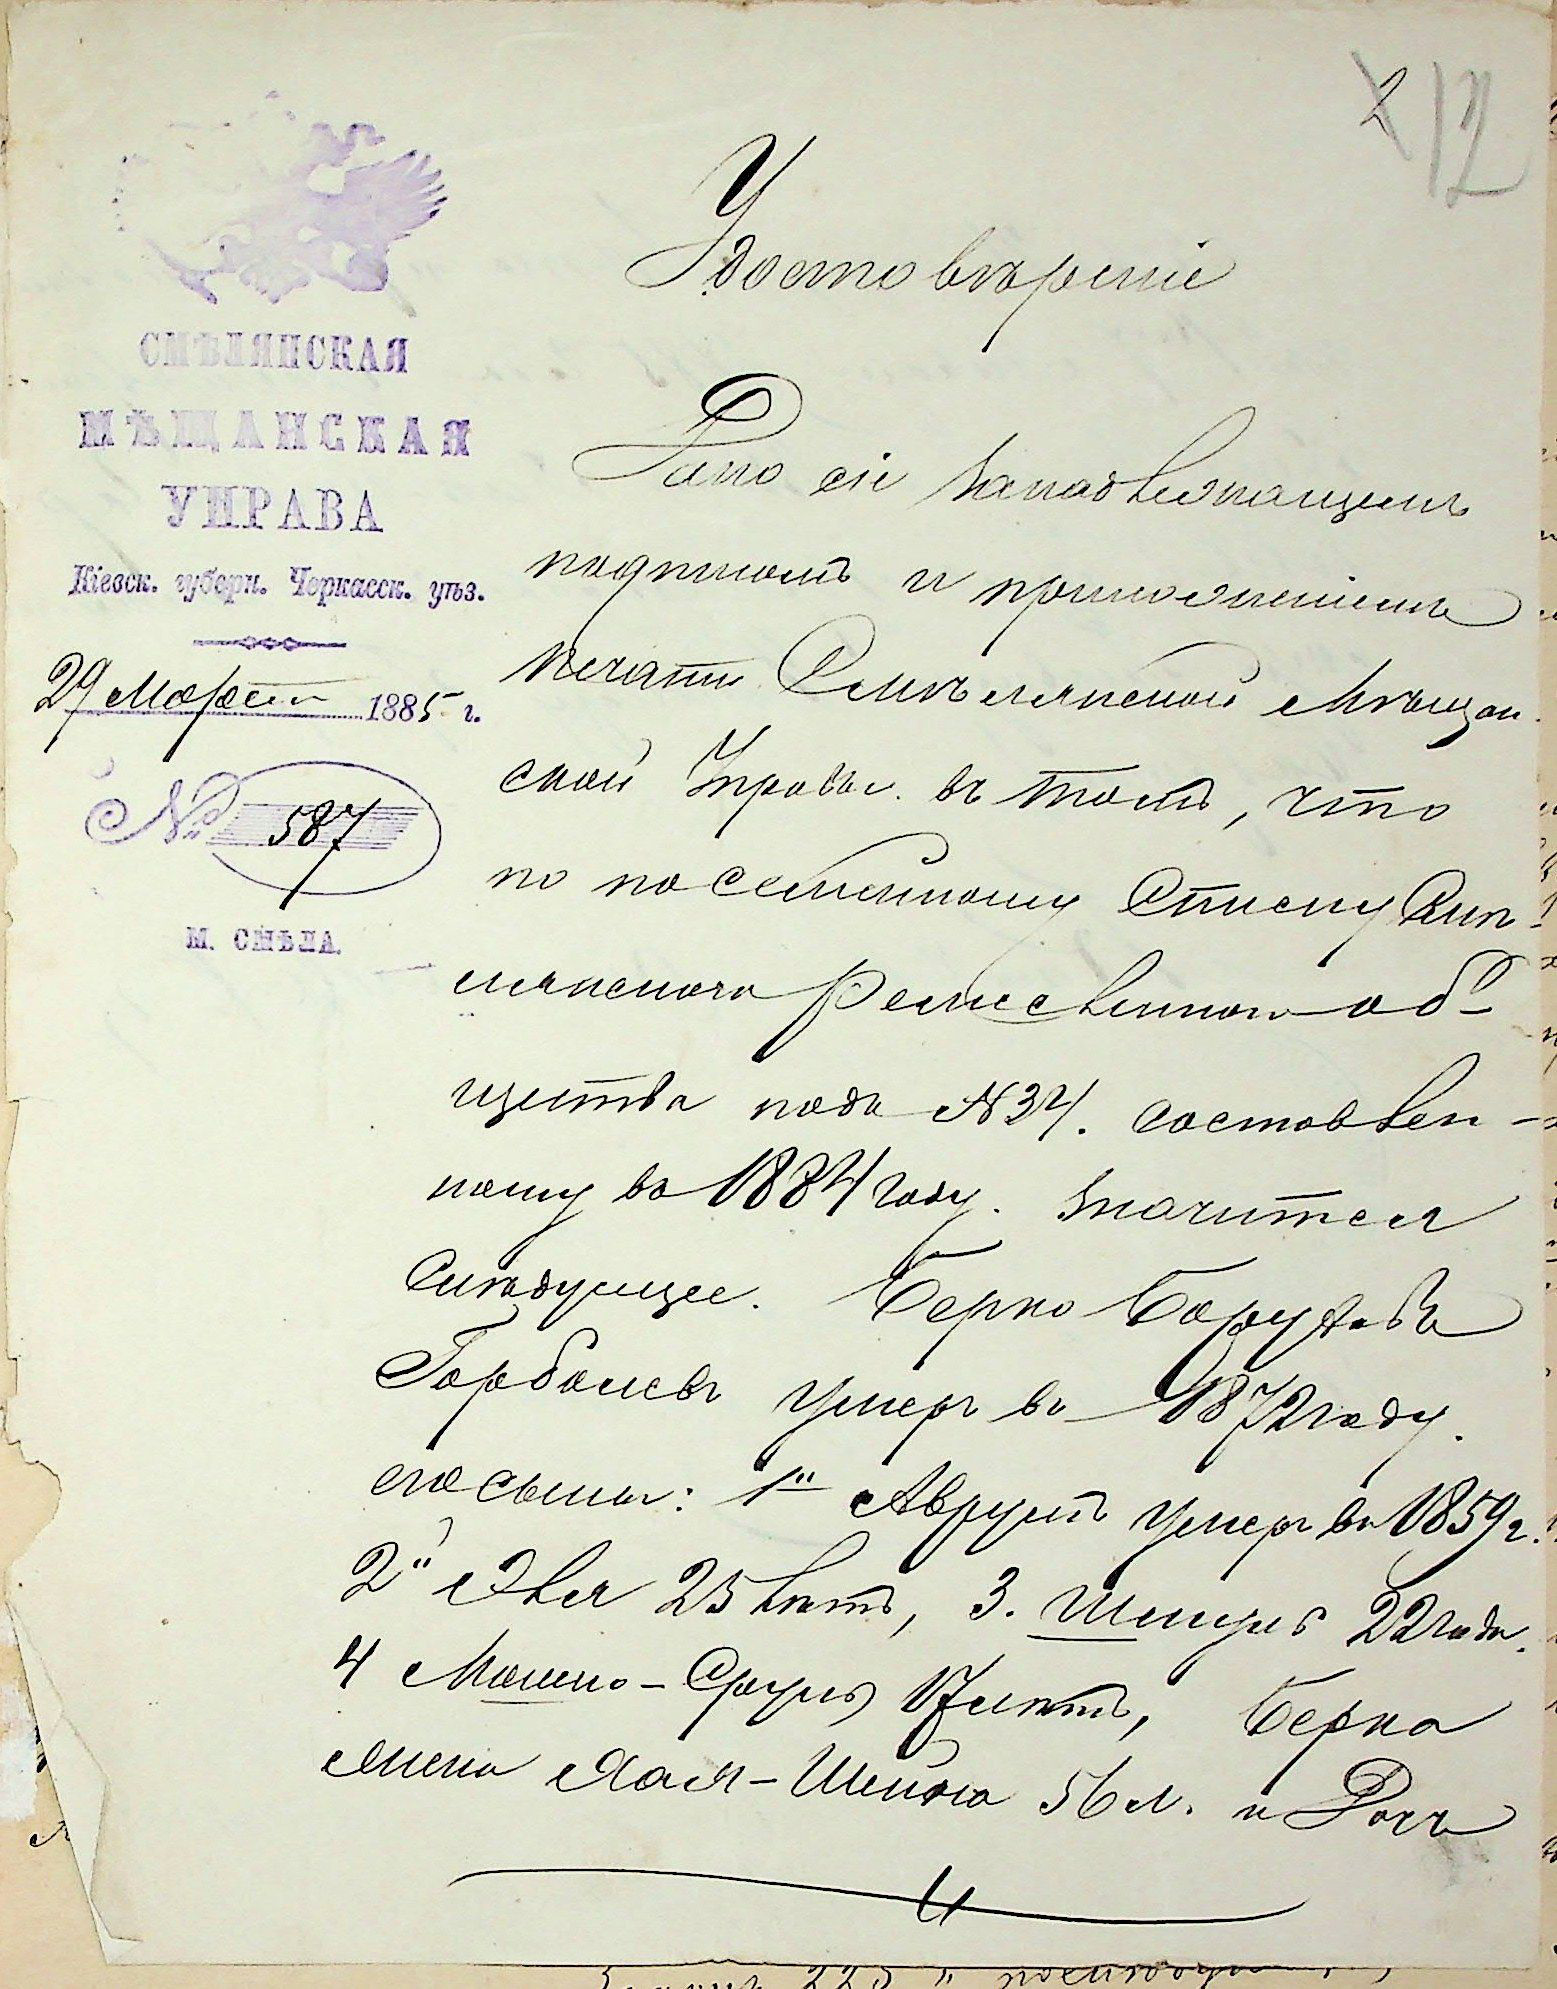 2 12
СМѢЛЯНСКАЯ
МѢЩАНСКАЯ
УПРАВА
Кіевск. губерн. Черкасск. уѣз.
29 Марта 1885 г.
№ 587
М. СМѢЛА.
Удостовѣреніе
Дано сіе за надлежащимъ
подписомъ и приложеніемъ
печати Смѣлянской Мѣщан
ской Управы въ томъ, что
по посемейному списку Смѣ-
лянскаго Ремесленного об-
щества подъ №34. составлен-
ному въ 1884 году. значится
слѣдующее. Берко Боруховъ
Горбачевъ умеръ въ 1872 году.
его сыны: 1й Аврумъ умеръ въ 1859 г.
2й Эля 25 лѣтъ, 3. Шмуль 22 года.
4 Мошко-Сруль 17 лѣтъ, Берка
жена Хая-Шейна 56 л. и Дочь